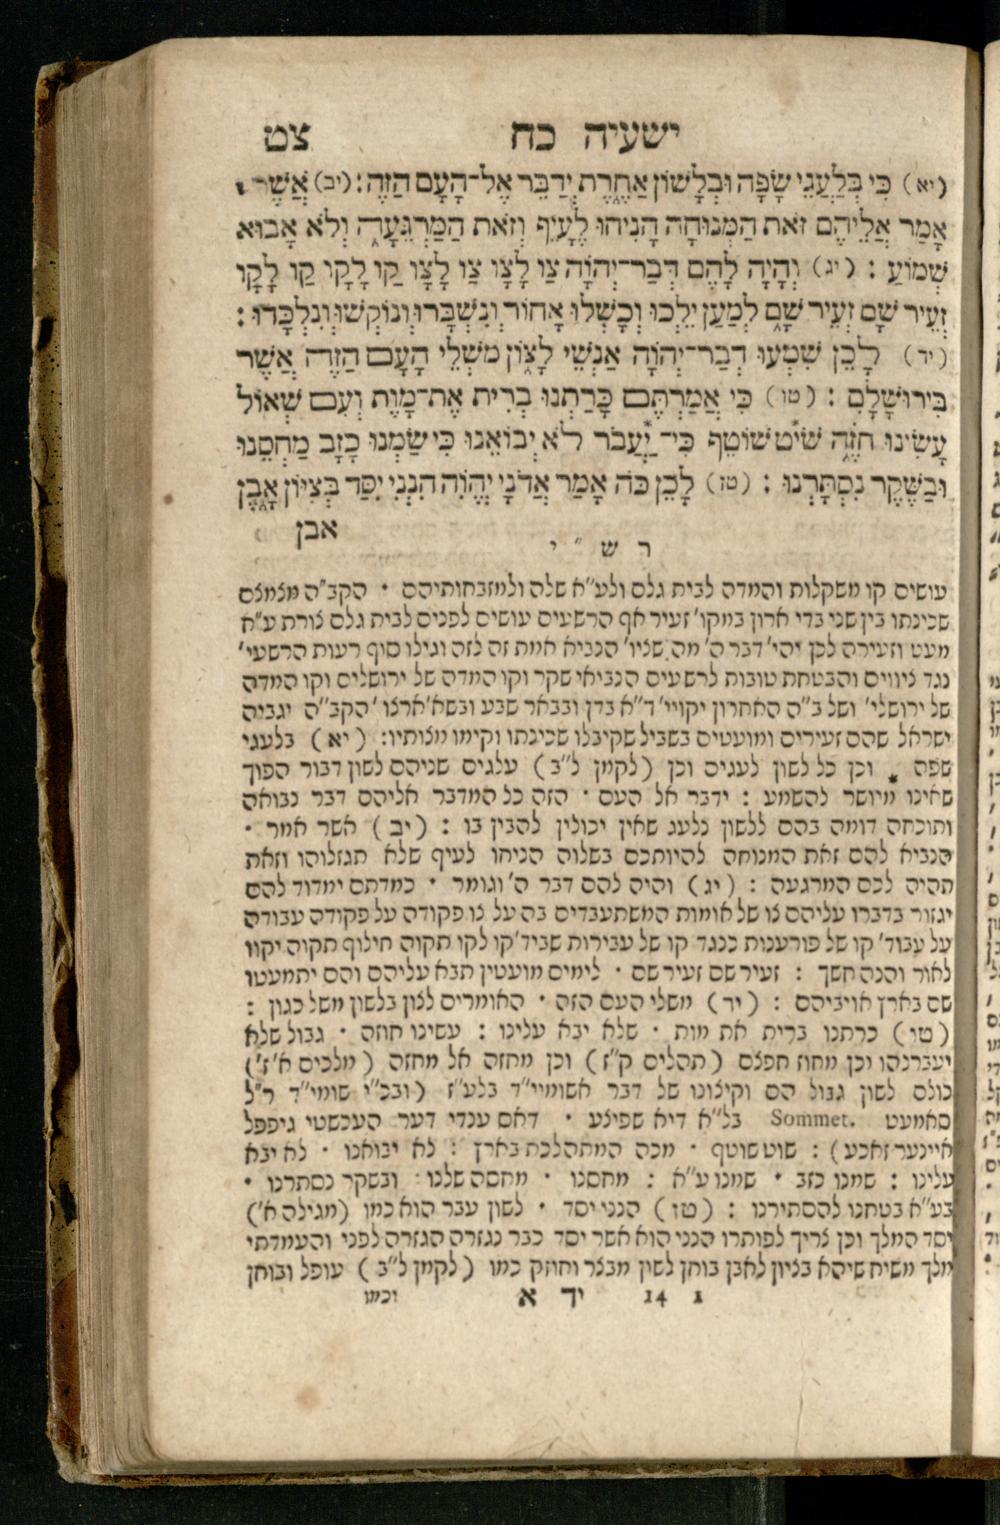 ישעיה כח צט
(יא) כִּי בְּלַעֲגֵי שָׂפָה וּבְלָשׁוֹן אַחֶרֶת יְדַבֵּר אֶל־הָעָם הַזֶּה: (יב) אֲשֶׁר ׀
אָמַר אֲלֵיהֶם זֹאת הַמְּנוּחָה הָנִיחוּ לֶעָיֵף וְזֹאת הַמַּרְגֵּעָה וְלֹא אָבוּא
שְׁמוֹעַ : (יג) וְהָיָה לָהֶם דְּבַר־יְהוָֹה צַו לָצָו צַו לָצָו קַו לָקָו קַו לָקָו
זְעֵיר שָׁם זְעֵיר שָׁם לְמַעַן יֵלְכוּ וְכָשְׁלוּ אָחוֹר וְנִשְׁבָּרוּ וְנוֹקְשׁוּ וְנִלְכָּדוּ :
(יד) לָכֵן שִׁמְעוּ דְבַר־יְהוָֹה אַנְשֵׁי לָצוֹן מֹשְׁלֵי הָעָם הַזֶּה אֲשֶׁר
בִּירוּשָׁלָםִ : (טו) כִּי אֲמַרְתֶּם כָּרַתְנוּ בְרִית אֶת־מָוֶת וְעִם שְׁאוֹל
עָשִׂינוּ חֹזֶה שׁיֹט שׁוֹטֵף כִּי־ יַעֲבֹר לֹא יְבוֹאֵנוּ כִּי שַׂמְנוּ כָזָב מַחְסֵנוּ
וּבַשֶּׁקֶר נִסְתָּרְנוּ : (טז) לָכֵן כֹּה אָמַר אֲדֹנָי יֱהוִֹה הִנְנִי יִסַּד בְּצִיּוֹן אָבֶן
אבן
ר ש ״ י
עושים קו משקלות והמדה לבית גלם ולע״א שלה ולמזבחותיהם ・ הקב״ה מצמצם
שכינתו בין שני בדי ארון במקו' זעיר אף הרשעים עושים לפנים לבית גלם צורת ע״א
מעט וזעירה לכן יהי' דבר ה' מה שציו' הנביא אמת זה לזה וגילו סוף רעות הרשעי'
נגד ציווים והבטחת טובות לרשעים הנביאי שקר וקו המדה של ירושלים וקו המדה
של ירושלי' ושל ב״ה האחרון יקויי' ד״א בדן ובבאר שבע ובשא'ארצו 'הקב״ה יגביה
ישראל שהם זעירים ומועטים בשביל שקיבלו שכינתו וקימו מצותיו: (יא) בלעגי
שפה ・ וכן כל לשון לעגים וכן (לקמן ל״ב) עלגים שניהם לשון דבור הפוך
שאינו מיושר להשמע : ידבר אל העם ・ הזה כל המדבר אליהם דבר נבואה
ותוכחה דומה בהם ללשון נלעג שאין יכולין להבין בו : (יב) אשר אמר ・
הנביא להם זאת המנוחה להיותכם בשלוה הניחו לעיף שלא תגזלוהו וזאת
תהיה לכם המרגעה : (יג) והיה להם דבר ה' וגומר ・ כמדתם ימדוד להם
יגזור בדברו עליהם צו של אומות המשתעבדים בה על צו פקודה על פקודה עבודה
על עבוד' קו של פורענות כנגד קו של עבירות שביד' קו לקו תקוה חילוף תקוה יקוו
לאור והנה חשך : זעיר שם זעיר שם ・ לימים מועטין תבא עליהם והם יתמעטו
שם בארץ אויביהם : (יד) משלי העם הזה ・ האומרים לצון בלשון משל כגון :
(טו) כרתנו ברית את מות ・ שלא יבא עלינו : עשינו חוזה ・ גבול שלא
יעברנהו וכן מחוז חפצם (תהלים ק״ז) וכן מחזה אל מחזה (מלכים א' ז')
כולם לשון גבול הם וקיצונו של דבר אשומיי״ד בלע״ז (ובכ״י שומי״ד ר״ל
סאמעט .Sommet בל״א דיא שפיצע ・ דאס ענדי דער העכשטי גיפפל
איינער זאכע) : שוט שוטף ・ מכה המתהלכת בארץ : לא יבואנו ・ לא יבא
עלינו : שמנו כזב ・ שמנו ע״א : מחסנו ・ מחסה שלנו ・ ובשקר נסתרנו ・
בע״א בטחנו להסתירנו : (טז) הנני יסד ・ לשון עבר הוא כמו (מגילה א')
יסד המלך וכן צריך לפותרו הנני הוא אשר יסד כבר נגזרה הגזרה לפני והעמדתי
מלך משיח שיהא בציון לאבן בוחן לשון מבצר וחוזק כמו (לקמן ל״ב) עופל ובוחן
1 14 יד א וכמו